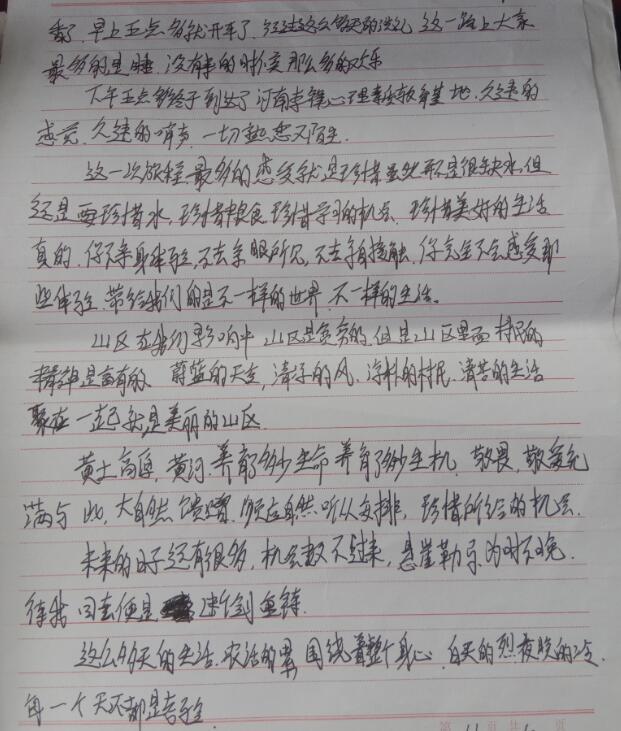 了，早上五点多就开车了，经过这么多天的洗礼，这一路上大家
最多的是睡，没有来的时候那么多的欢乐
下午五点多终于到达了河南李锋心理素质教育基地，久违的
感觉，久违的哨声，一切熟悉又陌生。
这一次旅程最多的感受就是珍惜虽然不是很缺水，但
还是要珍惜水，珍惜粮食，珍惜学习的机会，珍惜美好的生活
真的，你不亲身体验，不去亲眼所见，不去亲自接触，你完全不会感受那
些体验，带给我们的是不一样的世界，不一样的生活。
山区在我们影响中山区是贫穷的，但是山区里面村民的
精神是富有的，蔚蓝的天空，清凉的风，淳朴的村民，清苦的生活
聚在一起就是美丽的山区
黄土高原，黄河，养育多少生命养育了多少生机，敬畏，敬爱充
满与此，大自然馈赠，顺应自然，听从安排，珍惜所给的机会，
未来的日子还有很多，机会数不过来，悬崖勒马为时不晚，
待我回去便是断剑重铸
这么多天的生活，农活的累，围绕着整个身心，白天的烈夜晚的冷，
每一个天不都是考验
第 页 共 页